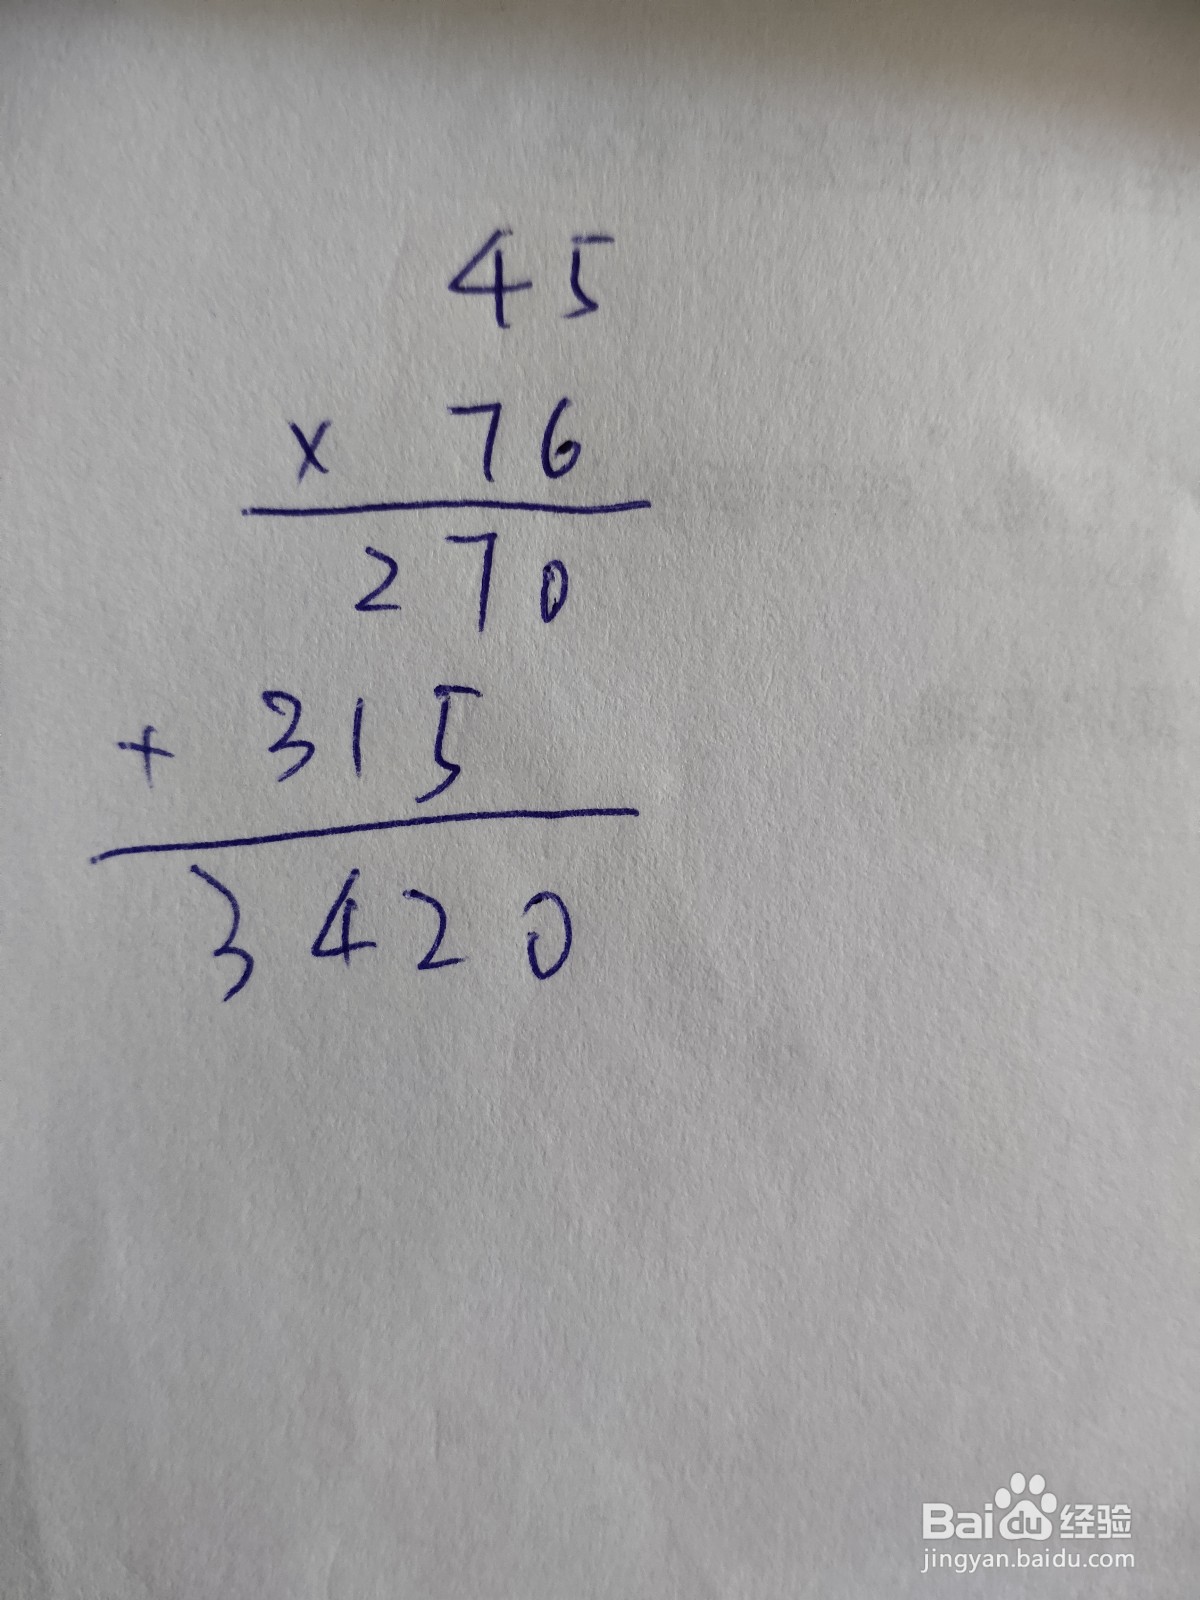 45
x 76
270
+ 315
3420
Baidu经验
jingyan.baidu.com